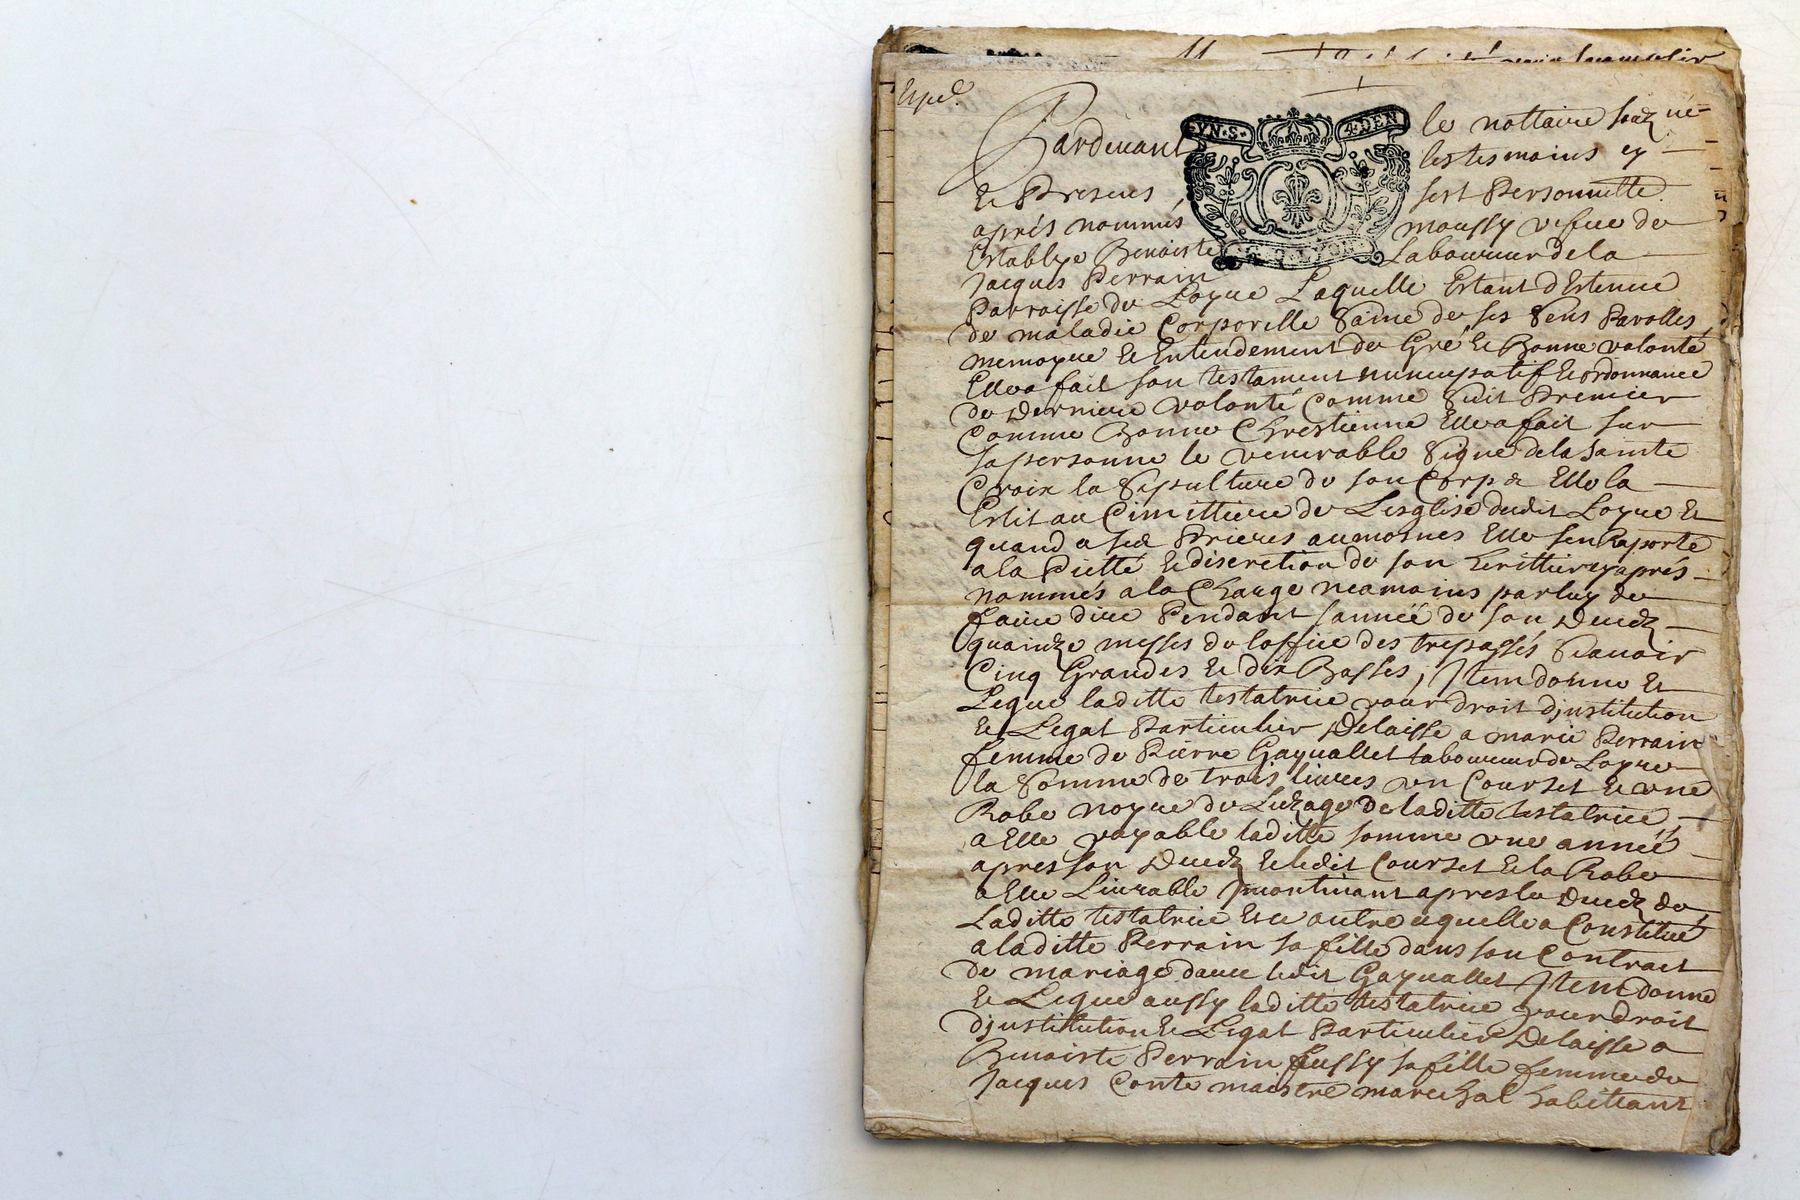 Expéd.
Pardevant le nottaire souz né
Et Presens les tesmoins cy
après nommés fust Personnelle.
Establye Benoiste moussy vefue de
Jacques Perrain Laboureur de la
VN·S· 4·DEN
LYON
Parroisse de Loyre Laquelle Estant d'Estenue
de maladie Corporelle Saine de ses Sens Parolles,
memoyre Et Entendement de Gré Et Bonne volonté
Ellea fait son testament nuncupatif Et ordonnance
de Derniere volonté Comme Suit Premier
Comme Bonne Chrestienne Ellea fait sur
sa personne le venerable Signe dela Sainte
Croix la Sepulture de son Corps Elle la
Eslit au Cimittiere de L'esglise dudit Loyre Et
quand a ses Prieres aumosnes Elle sen Raporte
a la Pietté Et discretion de son herittier cy après
nommés a la Charge neamoins par luy de
faire dire Pendant lannéé de son Decedz
quaindze messes de loffice des trepassés Scavoir
Cinq Grandes Et dix Basses, Item donne Et
Legue laditte testatrice pour droit djnstitution
Et Legat Particulier Delaisse a marie Perrain
femme de Pierre Gayuallet laboureur de Loyre
la Somme de trois liures vn Courset Et vne
Robe noyre du Luzage de laditte testatrice
a Elle payable laditte somme vne année
apres son Decedz Et ledit Courset Et la Robe
a Elle Liurable Jmontinant apres le Decedz de
Laditte testatrice Et ce outre cequelle a Constitué
a laditte Perrain sa fille dans son Contract
de mariage dauec ledit Gayuallet Item donne
Et Legue aussy laditte testatrice pour droit
djnstitution Et Legat Particulier Delaisse a
Benoiste Perrain aussy sa fille femme de
Jacques Conte maistre mareschal habittant